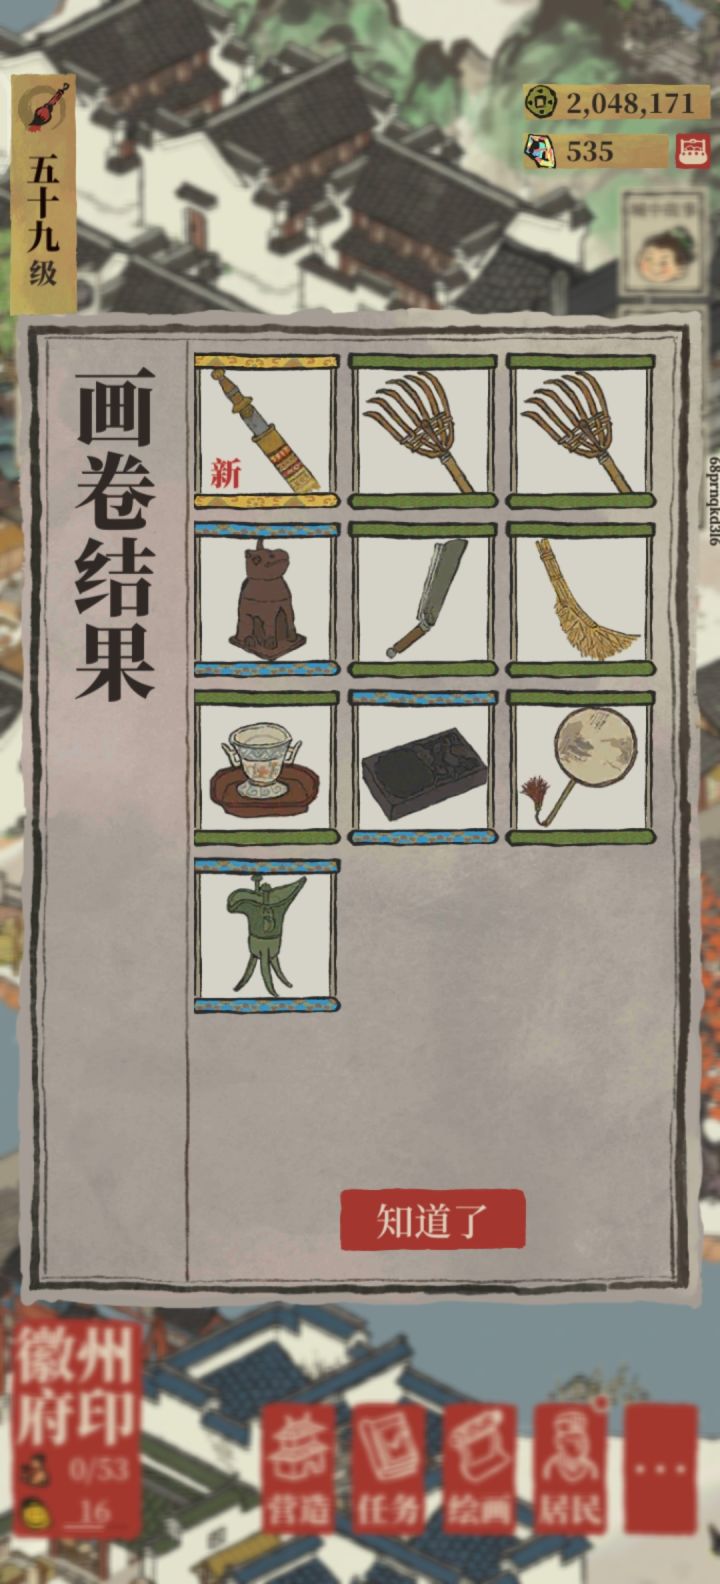 五十九级
2,048,171
535
画卷结果
新
知道了
68prnqkd3l6
徽州
府印
0/53
16
营造
任务
绘画
居民
...